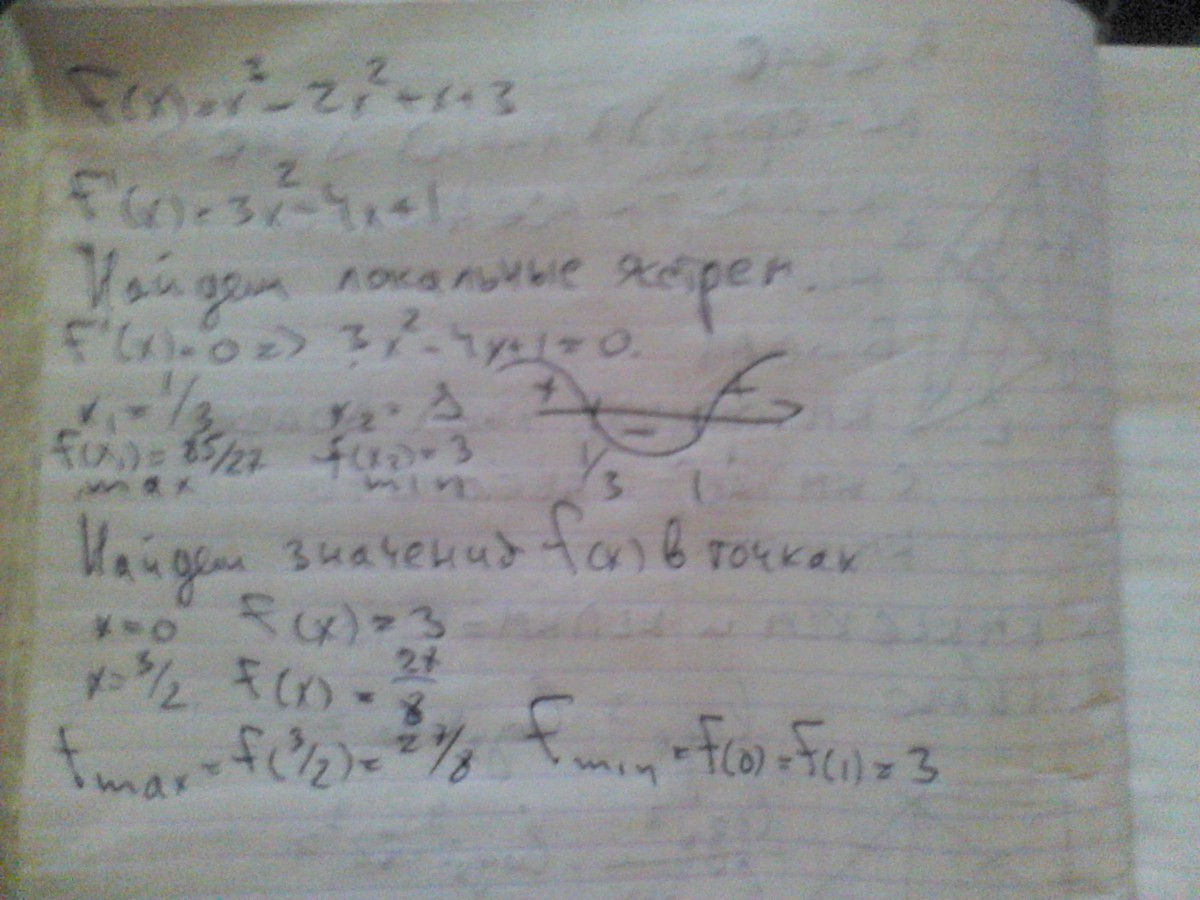 F(x)=x³-2x²+x+3
F'(x)=3x²-4x+1
Найдем локальные экстрем.
F'(x)=0 => 3x²-4x+1=0.
x₁=1/3 x₂=1 + - +
f(x₁)=85/27 f(x₂)=3 1/3 1
max min
Найдем значения f(x) в точках
x=0 F(x)=3
x=3/2 F(x)=27/8
fmax=f(3/2)=27/8 Fmin=f(0)=f(1)=3